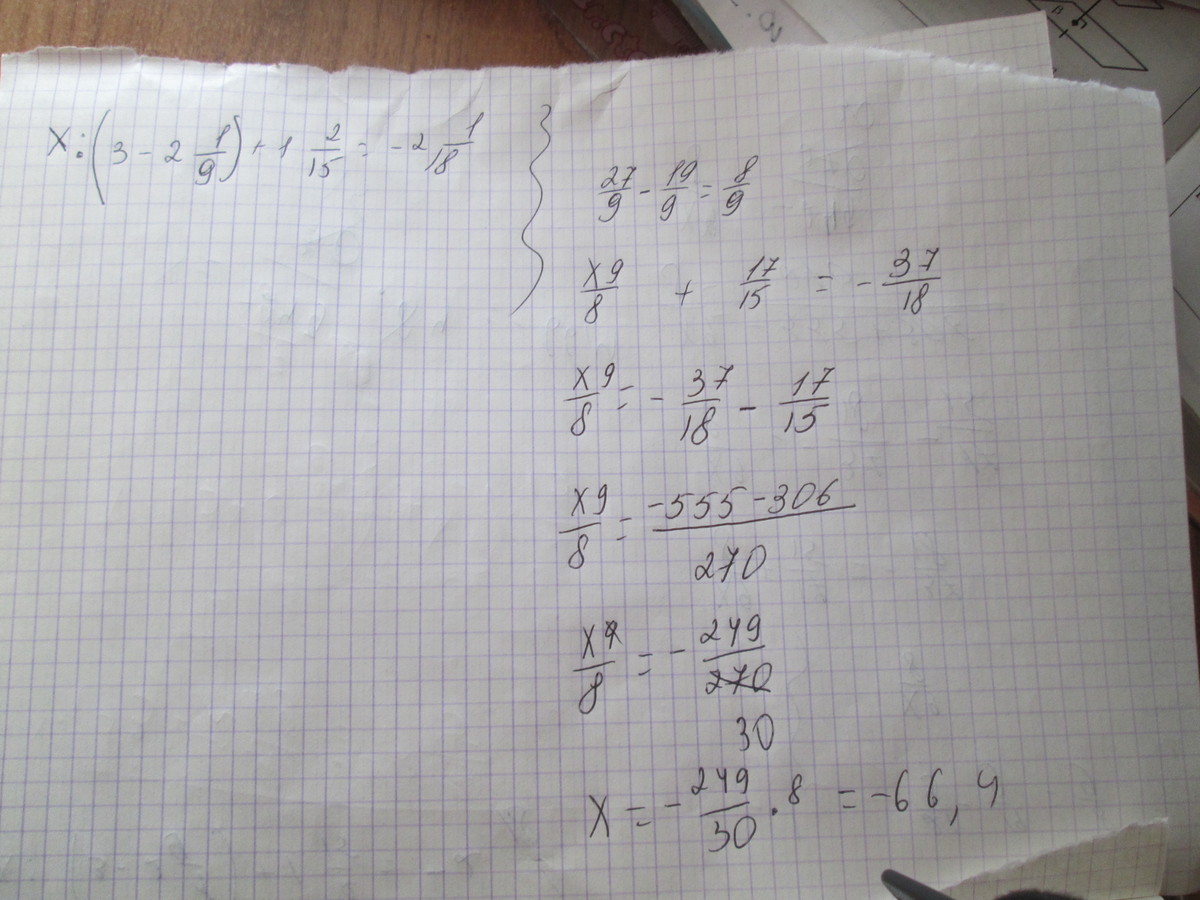 X:(3 - 2 1/9) + 1 2/15 = -2 1/18
27/9 - 19/9 = 8/9
X9/8 + 17/15 = - 37/18
X9/8 = - 37/18 - 17/15
X9/8 = -555-306/270
X9/8 = - 249/270
30
X = - 249/30 . 8 = -66,4